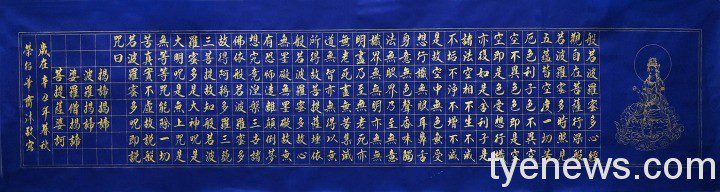 般若波羅蜜多心經
觀自在菩薩行深般
若波羅蜜多時照見
五蘊皆空度一切苦
厄舍利子色不異空
空不異色色即是空
空即是色受想行識
亦復如是舍利子是
諸法空相不生不滅
不垢不淨不增不減
是故空中無色無受
想行識無眼耳鼻舌
身意無色聲香味觸
法無眼界乃至無意
識界無無明亦無無
明盡乃至無老死亦
無老死盡無苦集滅
道無智亦無得以無
所得故菩提薩埵依
般若波羅蜜多故心
無罣礙無罣礙故無
有恐怖遠離顛倒夢
想究竟涅槃三世諸
佛依般若波羅蜜多
故得阿耨多羅三藐
三菩提故知般若波
羅蜜多是大神咒是
大明咒是無上咒是
無等等咒能除一切
苦真實不虛故說般
若波羅蜜多咒即說
咒曰
揭諦揭諦
波羅揭諦
波羅僧揭諦
菩提薩婆訶
歲在辛丑年暮秋
榮紹華齋沐敬寫
tyenews.com